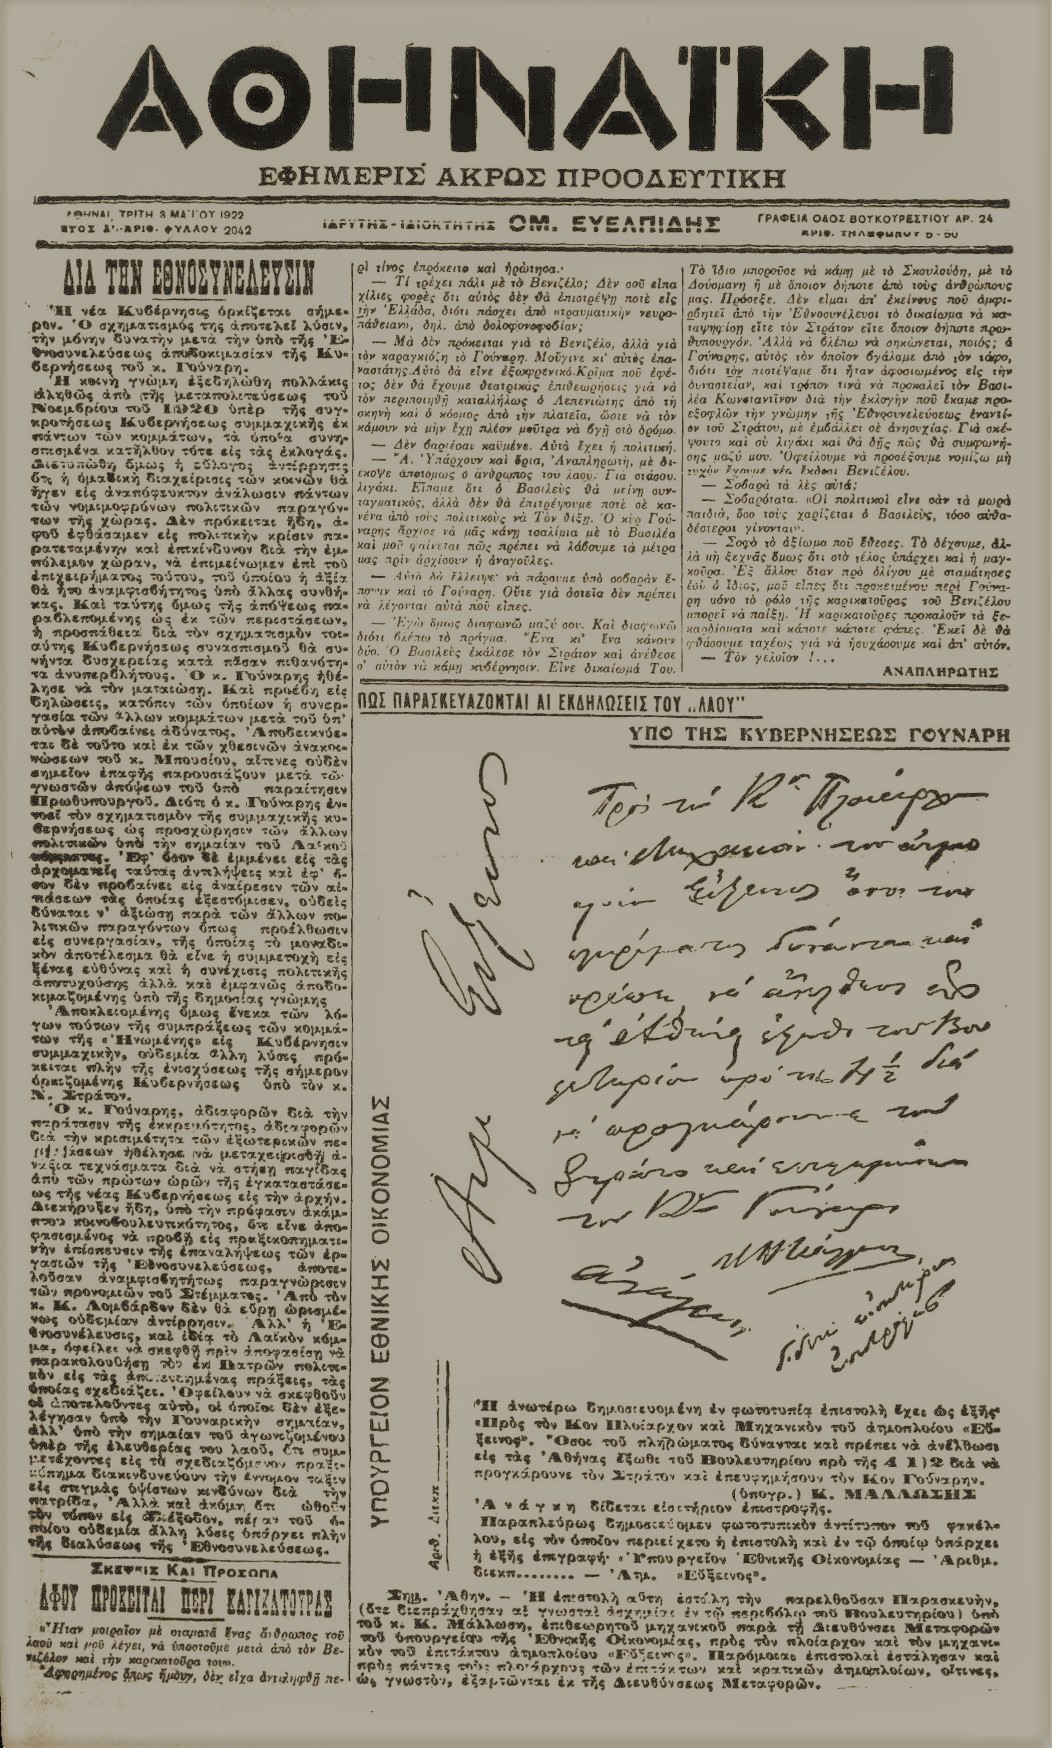 ΑΘΗΝΑΪΚΗ
ΕΦΗΜΕΡΙΣ ΑΚΡΩΣ ΠΡΟΟΔΕΥΤΙΚΗ
ΑΘΗΝΑΙ, ΤΡΙΤΗ 3 ΜΑΪΟΥ 1922
ΕΤΟΣ Δ'.-ΑΡΙΘ. ΦΥΛΛΟΥ 2042
ΙΔΡΥΤΗΣ-ΙΔΙΟΚΤΗΤΗΣ ΟΜ. ΕΥΕΛΠΙΔΗΣ
ΓΡΑΦΕΙΑ ΟΔΟΣ ΒΟΥΚΟΥΡΕΣΤΙΟΥ ΑΡ. 24
ΑΡΙΘ. ΤΗΛΕΦΩΝΟΥ
ΔΙΑ ΤΗΝ ΕΘΝΟΣΥΝΕΛΕΥΣΙΝ
Ἡ νέα Κυβέρνησις ὁρκίζεται σήμε-
ρον. Ὁ σχηματισμός της ἀποτελεῖ λύσιν,
τὴν μόνην δυνατὴν μετὰ τὴν ὑπὸ τῆς Ἐ-
θνοσυνελεύσεως ἀποδοκιμασίαν τῆς Κυ-
βερνήσεως τοῦ κ. Γούναρη.
Ἡ κοινὴ γνώμη ἐξεδηλώθη πολλάκις
ἀληθῶς ἀπὸ τῆς μεταπολιτεύσεως τοῦ
Νοεμβρίου τοῦ 1920 ὑπὲρ τῆς συγ-
κροτήσεως Κυβερνήσεως συμμαχικῆς ἐκ
πάντων τῶν κομμάτων, τὰ ὁποῖα συνη-
σπισμένα κατῆλθον τότε εἰς τὰς ἐκλογάς.
Διετυπώθη ὅμως ἡ εὔλογος ἀντίρρησις
ὅτι ἡ ὁμαδικὴ διαχείρισις τῶν κοινῶν θὰ
ἦγεν εἰς ἀναπόφευκτον ἀνάλωσιν πάντων
τῶν νομιμοφρόνων πολιτικῶν παραγόν-
των τῆς χώρας. Δὲν πρόκειται ἤδη, ἀ-
φοῦ ἐφθάσαμεν εἰς πολιτικὴν κρίσιν πα-
ρατεταμένην καὶ ἐπικίνδυνον διὰ τὴν ἐμ-
πόλεμον χώραν, νὰ ἐπιμείνωμεν ἐπὶ τοῦ
ἐπιχειρήματος τούτου, τοῦ ὁποίου ἡ ἀξία
θὰ ἦτο ἀναμφισβήτητος ὑπὸ ἄλλας συνθή-
κας. Καὶ ταύτης ὅμως τῆς ἀπόψεως πα-
ραβλεπομένης ὡς ἐκ τῶν περιστάσεων,
ἡ προσπάθεια διὰ τὸν σχηματισμὸν τοι-
αύτης Κυβερνήσεως συνασπισμοῦ θὰ συ-
νήντα δυσχερείας κατὰ πᾶσαν πιθανότη-
τα ἀνυπερβλήτους. Ὁ κ. Γούναρης ἠθέ-
λησε νὰ τὸν ματαιώσῃ. Καὶ προέβη εἰς
δηλώσεις, κατόπιν τῶν ὁποίων ἡ συνερ-
γασία τῶν ἄλλων κομμάτων μετὰ τοῦ ὑπ'
αὐτὸν ἀποβαίνει ἀδύνατος. Ἀποδεικνύε-
ται δὲ τοῦτο καὶ ἐκ τῶν χθεσινῶν ἀνακοι-
νώσεων τοῦ κ. Μπουσίου, αἵτινες οὐδὲν
σημεῖον ἐπαφῆς παρουσιάζουν μετὰ τῶν
γνωστῶν ἀπόψεων τοῦ ὑπὸ παραίτησιν
Πρωθυπουργοῦ. Διότι ὁ κ. Γούναρης ἐν-
νοεῖ τὸν σχηματισμὸν τῆς συμμαχικῆς κυ-
βερνήσεως ὡς προσχώρησιν τῶν ἄλλων
πολιτικῶν ὑπὸ τὴν σημαίαν τοῦ Λαϊκοῦ
κόμματος. Ἐφ' ὅσον δὲ ἐμμένει εἰς τὰς
ἀρχομανεῖς ταύτας ἀντιλήψεις καὶ ἐφ' ὅ-
σον δὲν προβαίνει εἰς ἀναίρεσιν τῶν αἰ-
τιάσεων τὰς ὁποίας ἐξεστόμισεν, οὐδεὶς
δύναται ν' ἀξιώσῃ παρὰ τῶν ἄλλων πο-
λιτικῶν παραγόντων ὅπως προέλθωσιν
εἰς συνεργασίαν, τῆς ὁποίας τὸ μοναδι-
κὸν ἀποτέλεσμα θὰ εἶνε ἡ συμμετοχὴ εἰς
ξένας εὐθύνας καὶ ἡ συνέχισις πολιτικῆς
ἀποτυχούσης ἀλλὰ καὶ ἐμφανῶς ἀποδο-
κιμαζομένης ὑπὸ τῆς δημοσίας γνώμης
Ἀποκλειομένης ὅμως ἕνεκα τῶν λό-
γων τούτων τῆς συμπράξεως τῶν κομμά-
των τῆς «Ἡνωμένης» εἰς Κυβέρνησιν
συμμαχικήν, οὐδεμία ἄλλη λύσις πρό-
κειται πλὴν τῆς ἐνισχύσεως τῆς σήμερον
ὁρκιζομένης Κυβερνήσεως ὑπὸ τὸν κ.
Ν. Στράτον.
Ὁ κ. Γούναρης, ἀδιαφορῶν διὰ τὴν
παράτασιν τῆς ἐκκρεμότητος, ἀδιαφορῶν
διὰ τὴν κρισιμότητα τῶν ἐξωτερικῶν πε-
ριστάσεων ἠθέλησε νὰ μεταχειρισθῇ ἀ-
νάξια τεχνάσματα διὰ νὰ στήσῃ παγίδας
ἀπὸ τῶν πρώτων ὡρῶν τῆς ἐγκαταστάσε-
ως τῆς νέας Κυβερνήσεως εἰς τὴν ἀρχήν.
Διεκήρυξεν ἤδη, ὑπὸ τὴν πρόφασιν ἀκάμ-
πτου κοινοβουλευτικότητος, ὅτι εἶνε ἀπο-
φασισμένος νὰ προβῇ εἰς πραξικοπηματι-
κὴν ἐπίσπευσιν τῆς ἐπαναλήψεως τῶν ἐρ-
γασιῶν τῆς Ἐθνοσυνελεύσεως, ἀποτε-
λοῦσαν ἀναμφισβητήτως παραγνώρισιν
τῶν προνομίων τοῦ Στέμματος. Ἀπὸ τὸν
κ. Κ. Λομβάρδον δὲν θὰ εὕρῃ ὡρισμέ-
νως οὐδεμίαν ἀντίρρησιν. Ἀλλ' ἡ Ἐ-
θνοσυνέλευσις, καὶ ἰδίᾳ τὸ Λαϊκὸν κόμ-
μα, ὀφείλει νὰ σκεφθῇ πρὶν ἀποφασίσῃ νὰ
παρακολουθήσῃ τὸν ἐκ Πατρῶν πολιτι-
κὸν εἰς τὰς πράξεις, τὰς
ὁποίας σχεδιάζει. Ὀφείλουν νὰ σκεφθοῦν
οἱ ἀποτελοῦντες αὐτό, οἱ ὁποῖοι δὲν ἐξε-
λέγησαν ὑπὸ τὴν Γουναρικὴν σημαίαν,
ἀλλ' ὑπὸ τὴν σημαίαν τοῦ ἀγωνιζομένου
ὑπὲρ τῆς ἐλευθερίας του λαοῦ, ὅτι συμ-
μετέχοντες εἰς τὸ σχεδιαζόμενον πραξι-
κόπημα διακινδυνεύουν τὴν ἔννομον τάξιν
εἰς στιγμὰς ὑψίστων κινδύνων διὰ τὴν
πατρίδα. Ἀλλὰ καὶ ἀκόμη ὅτι ὠθοῦν
τὸν τόπον εἰς ἀδιέξοδον, πέραν τοῦ ὁ-
ποίου οὐδεμία ἄλλη λύσις ὑπάρχει πλὴν
τῆς διαλύσεως τῆς Ἐθνοσυνελεύσεως.
ΣΚΕΨΕΙΣ ΚΑΙ ΠΡΟΣΩΠΑ
ΑΦΟΥ ΠΡΟΚΕΙΤΑΙ ΠΕΡΙ ΚΑΡΙΚΑΤΟΥΡΑΣ
«Ἦταν μοιραῖον μὲ σταματᾷ ἕνας ἄνθρωπος τοῦ
λαοῦ καὶ μοῦ λέγει, νὰ ὑποστοῦμε μετὰ ἀπὸ τὸν Βε-
νιζέλον καὶ τὴν καρικατοῦρα του».
Ἀφηρημένος ὅπως ἤμουν, δὲν εἶχα ἀντιληφθῆ πε-
ρὶ τίνος ἐπρόκειτο καὶ ἠρώτησα.
— Τί τρέχει πάλι μὲ τὸ Βενιζέλο; Δὲν σοῦ εἶπα
χίλιες φορὲς ὅτι αὐτὸς δὲν θὰ ἐπιστρέψῃ ποτὲ εἰς
τὴν Ἑλλάδα, διότι πάσχει ἀπὸ «τραυματικὴν νευρο-
πάθειαν», δηλ. ἀπὸ δολοφονοφοβίαν;
— Μὰ δὲν πρόκειται γιὰ τὸ Βενιζέλο, ἀλλὰ γιὰ
τὸν καραγκιόζη τὸ Γούναρη. Μοὔγινε κι' αὐτὸς ἐπα-
ναστάτης. Αὐτὸ θὰ εἶνε ἐξωφρενικό. Κρῖμα ποῦ ἐφέ-
τος δὲν θὰ ἔχουμε θεατρικὰς ἐπιθεωρήσεις γιὰ νὰ
τὸν περιποιηθῇ καταλλήλως ὁ Λεπενιώτης ἀπὸ τὴ
σκηνὴ καὶ ὁ κόσμος ἀπὸ τὴν πλατεῖα, ὥστε νὰ τὸν
κάμουν νὰ μὴν ἔχῃ πλέον μοῦτρα νὰ βγῇ στὸ δρόμο.
— Δὲν βαριέσαι καϋμένε. Αὐτὰ ἔχει ἡ πολιτική.
— Ἆ. Ὑπάρχουν καὶ ὅρια, Ἀναπληρωτή, μὲ δι-
έκοψε ἀποτόμως ὁ ἄνθρωπος τοῦ λαοῦ. Γιὰ στάσου.
λιγάκι. Εἴπαμε ὅτι ὁ Βασιλεὺς θὰ μείνῃ συν-
ταγματικός, ἀλλὰ δὲν θὰ ἐπιτρέψουμε ποτὲ σὲ κα-
νένα ἀπὸ τοὺς πολιτικοὺς νὰ Τὸν θίξῃ. Ὁ κὺρ Γού-
ναρης ἄρχισε νὰ μᾶς κάνῃ τσαλίμια μὲ τὸ Βασιλέα
καὶ μοῦ φαίνεται πῶς πρέπει νὰ λάβουμε τὰ μέτρα
μας πρὶν ἀρχίσουν ἡ ἀναγοῦλες.
— Αὐτὸ δὰ ἔλλειψε νὰ πάρουμε ὑπὸ σοβαρὰν ἔ-
ποψιν καὶ τὸ Γούναρη. Οὔτε γιὰ ἀστεῖα δὲν πρέπει
νὰ λέγονται αὐτὰ ποῦ εἶπες.
— Ἐγὼ ὅμως διαφωνῶ μαζύ σου. Καὶ διαφωνῶ
διότι βλέπω τὸ πρᾶγμα. Ἕνα κι' ἕνα κάνουν
δύο. Ὁ Βασιλεὺς ἐκάλεσε τὸν Στράτον καὶ ἀνέθεσε
σ' αὐτὸν νὰ κάμῃ κυβέρνησιν. Εἶνε δικαίωμά Του.
Τὸ ἴδιο μποροῦσε νὰ κάμῃ μὲ τὸ Σκουλούδη, μὲ τὸ
Δούσμανη ἢ μὲ ὅποιον δήποτε ἀπὸ τοὺς ἀνθρώπους
μας. Πρόσεξε. Δὲν εἶμαι ἀπ' ἐκείνους ποῦ ἀμφι-
σβητεῖ ἀπὸ τὴν Ἐθνοσυνέλευσι τὸ δικαίωμα νὰ κα-
ταψηφίσῃ εἴτε τὸν Στράτον εἴτε ὅποιον δήποτε πρω-
θυπουργόν. Ἀλλὰ νὰ βλέπω νὰ σηκώνεται, ποιός; ὁ
Γούναρης, αὐτὸς τὸν ὁποῖον βγάλαμε ἀπὸ τὸν τάφο,
διότι τὸν πιστέψαμε ὅτι ἦταν ἀφοσιωμένος εἰς τὴν
δυναστείαν, καὶ τρόπον τινὰ νὰ προκαλεῖ τὸν Βασι-
λέα Κωνσταντῖνον διὰ τὴν ἐκλογὴν ποῦ ἔκαμε προ-
εξοφλῶν τὴν γνώμην τῆς Ἐθνοσυνελεύσεως ἐναντί-
ον τοῦ Στράτου, μὲ ἐμβάλλει σὲ ἀνησυχίας. Γιὰ σκέ-
ψουτο καὶ σὺ λιγάκι καὶ θὰ δῇς πῶς θὰ συμφωνή-
σῃς μαζύ μου. Ὀφείλουμε νὰ προσέξουμε νομίζω μὴ
τυχὸν ἔχουμε νέα ἔκδοσι Βενιζέλου.
— Σοβαρὰ τὰ λὲς αὐτά;
— Σοβαρότατα. «Οἱ πολιτικοὶ εἶνε σὰν τὰ μωρὰ
παιδιά, ὅσο τοὺς χαρίζεται ὁ Βασιλεύς, τόσο αὐθα-
δέστεροι γίνονται».
— Σοφὸ τὸ ἀξίωμα ποῦ ἔθεσες. Τὸ δέχουμε, ἀλ-
λὰ μὴ ξεχνᾷς ὅμως ὅτι στὸ τέλος ὑπάρχει καὶ ἡ μαγ-
κοῦρα. Ἐξ ἄλλου ὅταν πρὸ ὀλίγου μὲ σταμάτησες
ἐσὺ ὁ ἴδιος, μοῦ εἶπες ὅτι προκειμένου περὶ Γούνα-
ρη μόνο τὸ ρόλο τῆς καρικατούρας τοῦ Βενιζέλου
μπορεῖ νὰ παίξῃ. Ἡ καρικατοῦρες προκαλοῦν τὰ ξε-
καρδίσματα καὶ κάποτε κάποτε φάπες. Ἐκεῖ δὲ θὰ
φθάσουμε ταχέως γιὰ νὰ ἡσυχάσουμε καὶ ἀπ' αὐτόν.
— Τὸν γελοῖον !...
ΑΝΑΠΛΗΡΩΤΗΣ
ΠΩΣ ΠΑΡΑΣΚΕΥΑΖΟΝΤΑΙ ΑΙ ΕΚΔΗΛΩΣΕΙΣ ΤΟΥ „ΛΑΟΥ"
ΥΠΟ ΤΗΣ ΚΥΒΕΡΝΗΣΕΩΣ ΓΟΥΝΑΡΗ
Πρὸς τὸν Κον Πλοίαρχον
καὶ Μηχανικὸν τοῦ ἀτμο
πλοίου Εὔξεινος Ὅσοι τοῦ
πληρώματος δύνανται καὶ
πρέπει νὰ ἀνέλθουν εἰς
τὰς Ἀθήνας ἔξωθι τοῦ Βου
λευτηρίου πρὸ τῆς 4 ½ διὰ
νὰ προγκάρουνε τὸν
Στράτο καὶ ἐπευφημήσουν
τὸν Κον Γούναρη
Κ Μάλλωσης
Ἀνάγκη
δίδεται εἰσιτήριον
ἐπιστροφῆς
ΥΠΟΥΡΓΕΙΟΝ ΕΘΝΙΚΗΣ ΟΙΚΟΝΟΜΙΑΣ
Ἀριθ. Διεκπ.
Ἀτμ Εὔξεινος
Ἡ ἀνωτέρω δημοσιευομένη ἐν φωτοτυπίᾳ ἐπιστολὴ ἔχει ὡς ἑξῆς·
«Πρὸς τὸν Κον Πλοίαρχον καὶ Μηχανικὸν τοῦ ἀτμοπλοίου «Εὔ-
ξεινος». Ὅσοι τοῦ πληρώματος δύνανται καὶ πρέπει νὰ ἀνέλθωσι
εἰς τὰς Ἀθήνας ἔξωθι τοῦ Βουλευτηρίου πρὸ τῆς 4 1)2 διὰ νὰ
προγκάρουνε τὸν Στράτον καὶ ἐπευφημήσουν τὸν Κον Γούναρην.
(ὑπογρ.) Κ. ΜΑΛΛΩΣΗΣ
Ἀνάγκη δίδεται εἰσιτήριον ἐπιστροφῆς.
Παραπλεύρως δημοσιεύομεν φωτοτυπικὸν ἀντίτυπον τοῦ φακέλ-
λου, εἰς τὸν ὁποῖον περιείχετο ἡ ἐπιστολὴ καὶ ἐν τῷ ὁποίῳ ὑπάρχει
ἡ ἑξῆς ἐπιγραφή· «Ὑπουργεῖον Ἐθνικῆς Οἰκονομίας — Ἀριθμ.
διεκπ........ — Ἀτμ. «Εὔξεινος».
Σημ. Ἀθην. — Ἡ ἐπιστολὴ αὕτη ἐστάλη τὴν παρελθοῦσαν Παρασκευήν,
(ὅτε διεπράχθησαν αἱ γνωσταὶ ἀσχημίαι ἐν τῷ περιβόλῳ τοῦ Βουλευτηρίου) ὑπὸ
τοῦ κ. Κ. Μάλλωση, ἐπιθεωρητοῦ μηχανικοῦ παρὰ τῇ Διευθύνσει Μεταφορῶν
τοῦ ὑπουργείου τῆς Ἐθνικῆς Οἰκονομίας, πρὸς τὸν πλοίαρχον καὶ τὸν μηχανι-
κὸν τοῦ ἐπιτάκτου ἀτμοπλοίου «Εὔξεινος». Παρόμοιαι ἐπιστολαὶ ἐστάλησαν καὶ
πρὸς πάντας τοὺς πλοιάρχους τῶν ἐπιτάκτων καὶ κρατικῶν ἀτμοπλοίων, οἵτινες,
ὡς γνωστόν, ἐξαρτῶνται ἐκ τῆς Διευθύνσεως Μεταφορῶν.